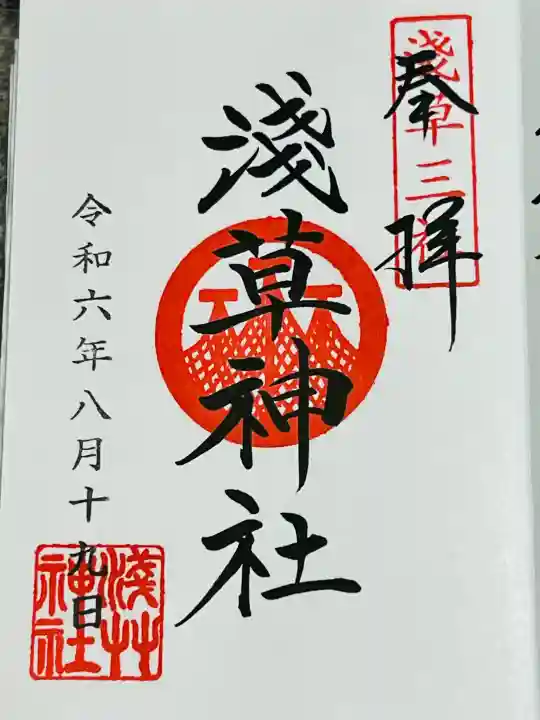 奉拝
浅草三社
淺草神社
令和六年八月十九日
淺艸
神社